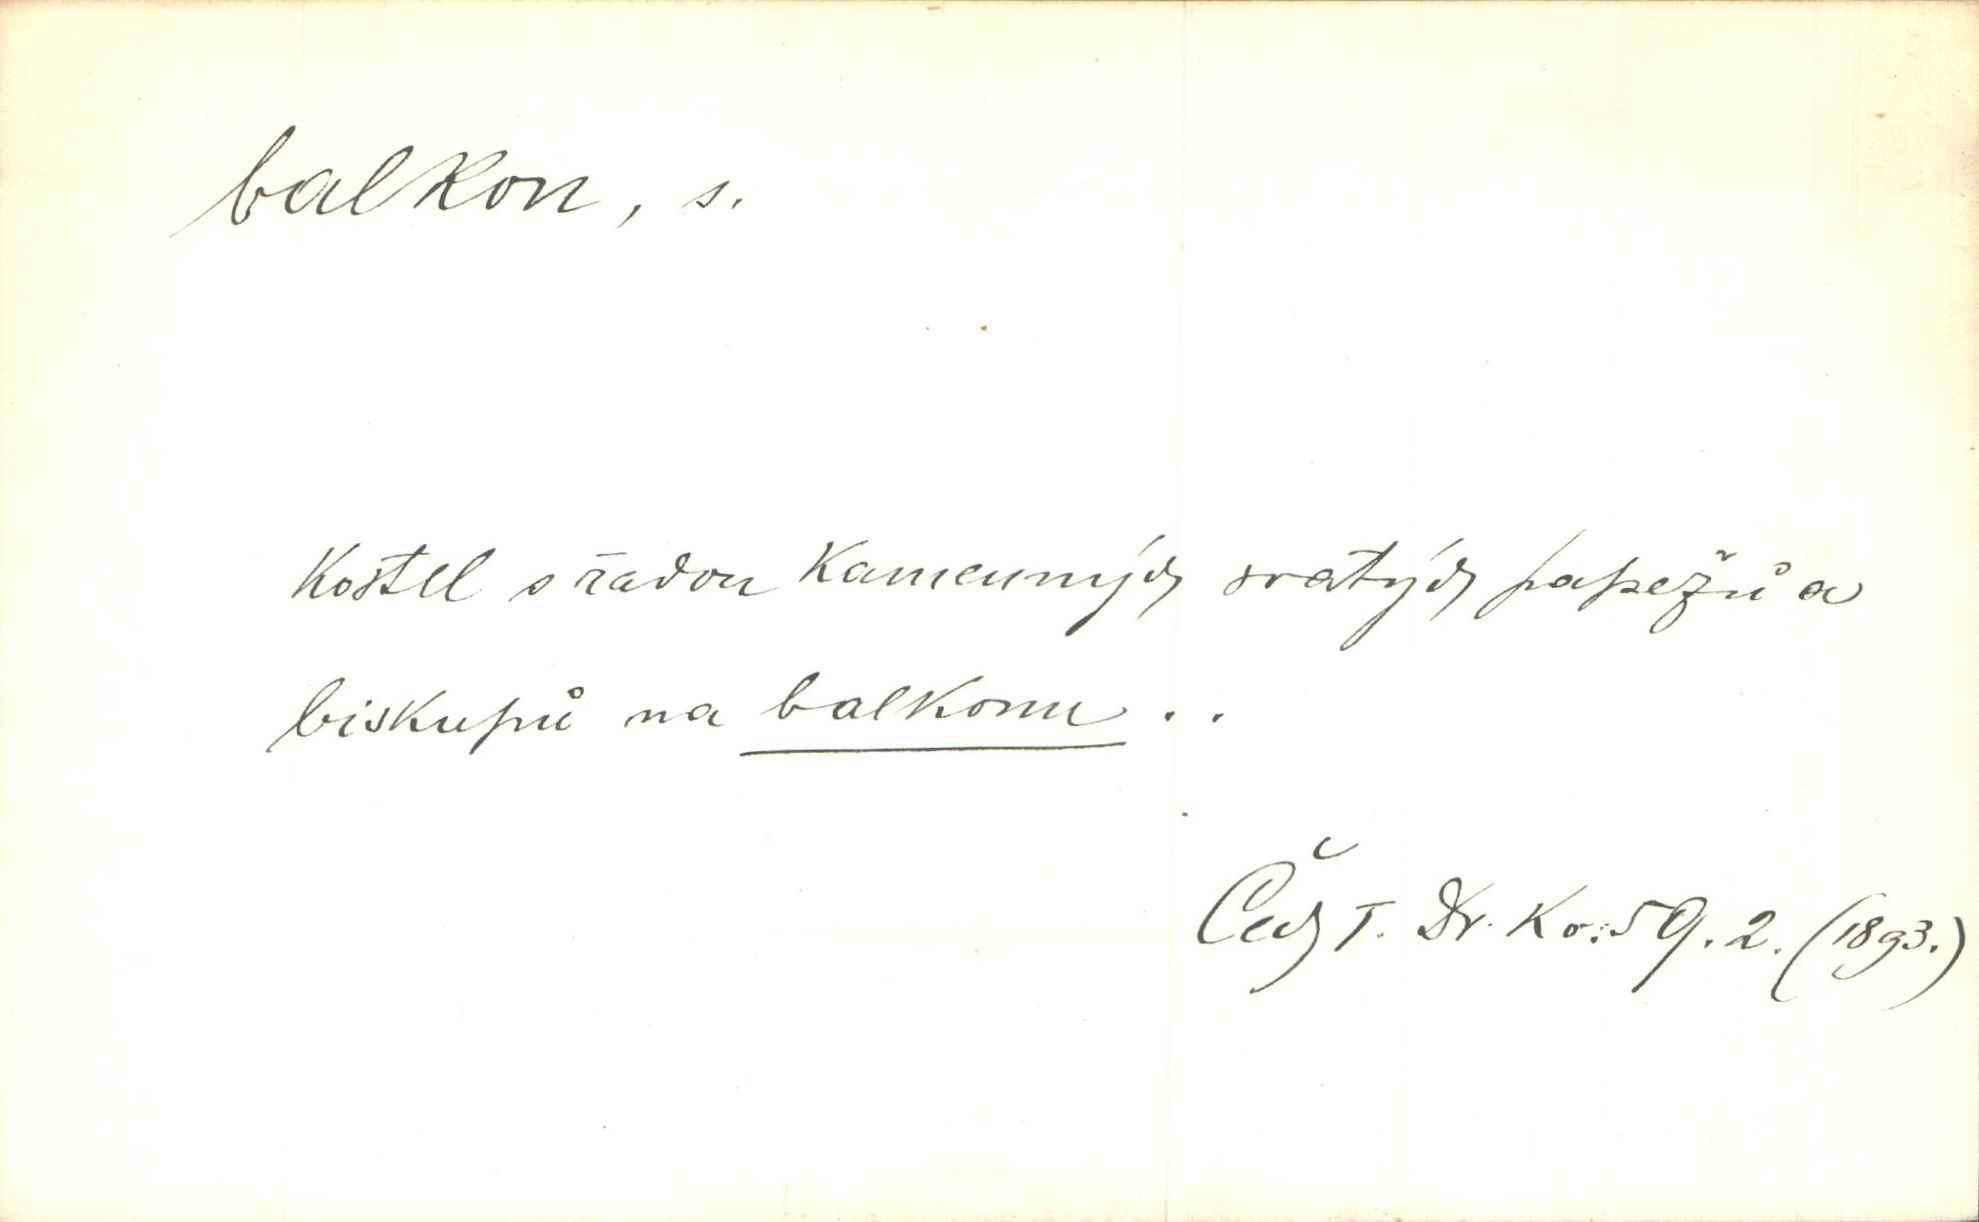 balkon, s.
Kostel s řadou kamenných svatých papežů a
biskupů na balkonu . .
Čech T. Dr. Ko. 59. 2. (1893.)